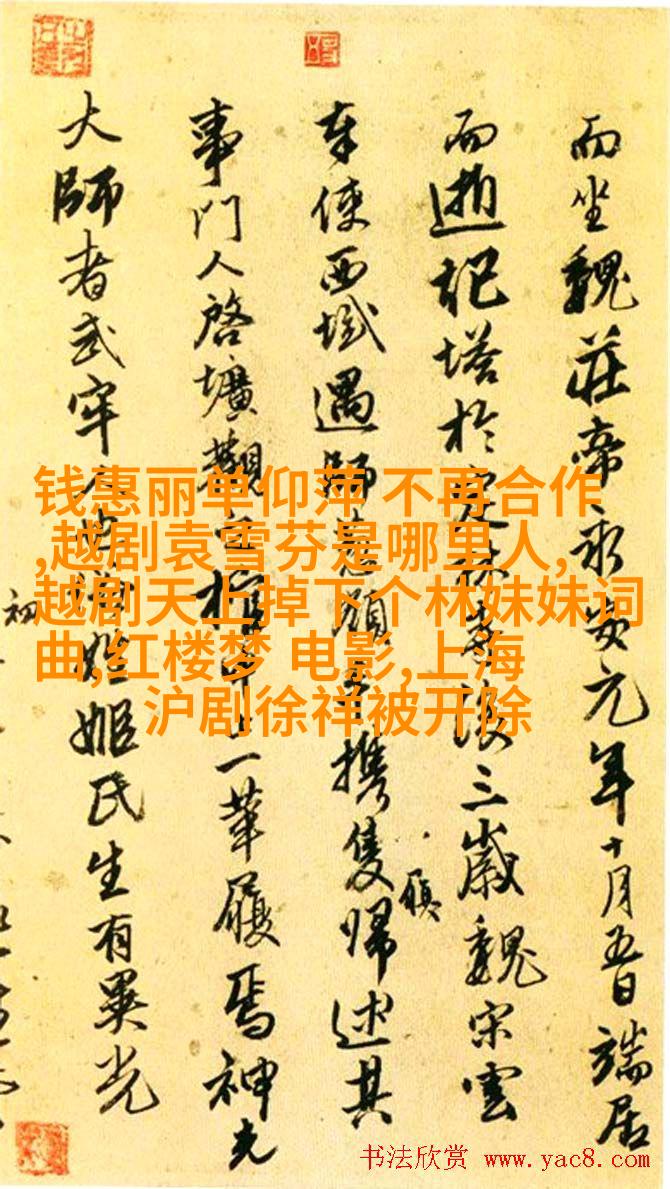 而坐魏莊帝永安元年十月五日端居
而逝記塔於定林寺後三歲魏宋雲
奉使西域遇師葱嶺手携隻歸述其
履
事門人啓壙觀之棺中一革履焉神光
大師者武牢人姬氏生有異光
初
钱惠丽单仰萍 不再合作
,越剧袁雪芬是哪里人,
越剧天上掉下个林妹妹词
曲,红楼梦 电影,上海
沪剧徐祥被开除
书法欣赏 www.yac8.com